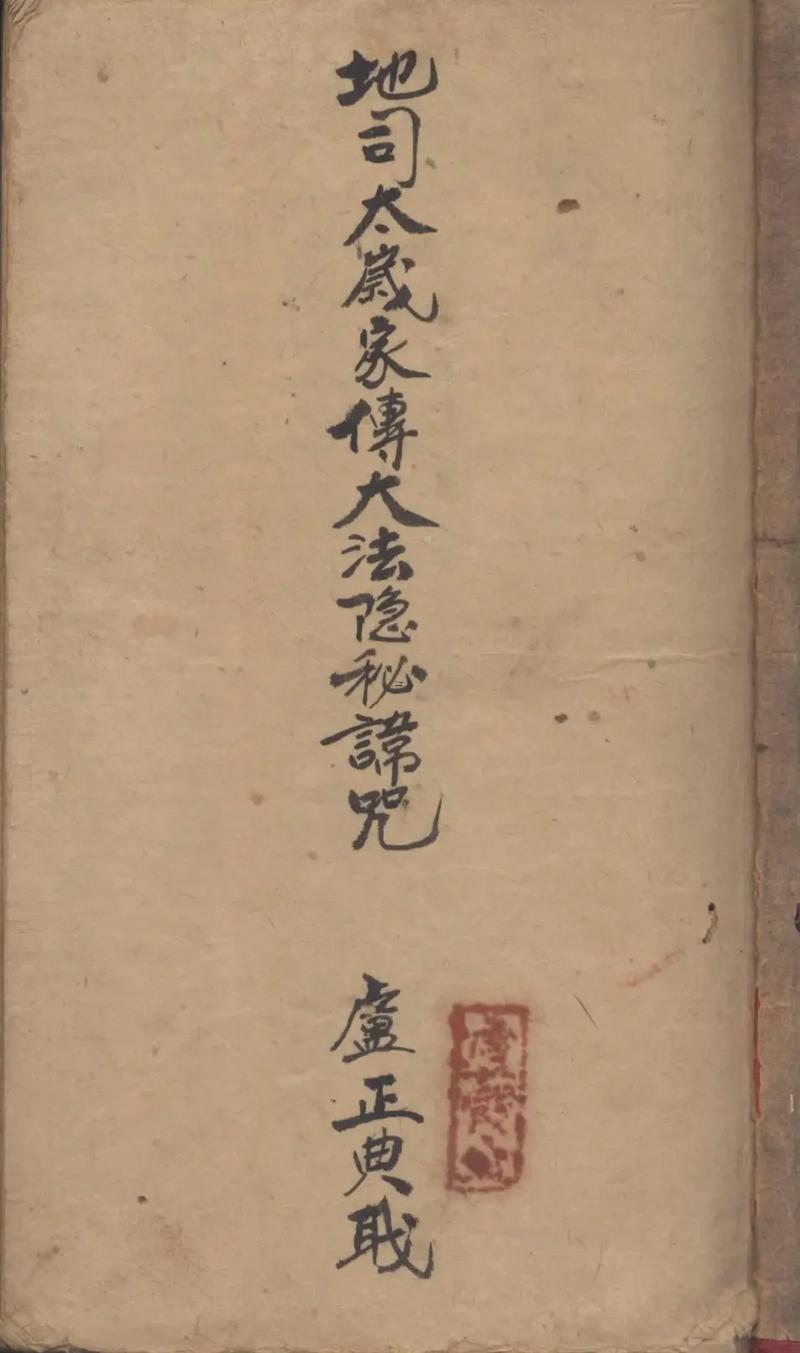 地司太歲家傳大法隐秘諱咒
盧正典戢